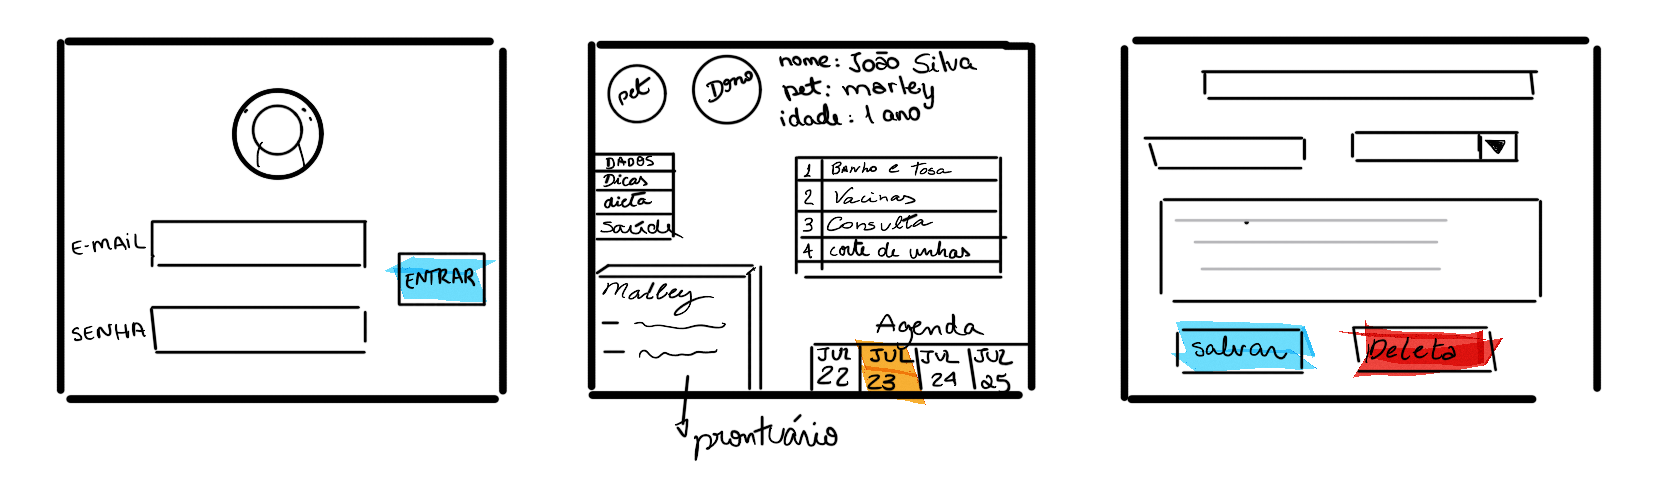 E-MAIL
ENTRAR
SENHA
pet
Dono
nome: João Silva
pet: marley
idade: 1 ano
DADOS
Dicas
dieta
Saúde
1 Banho e Tosa
2 Vacinas
3 Consulta
4 corte de unhas
Malley
Agenda
JUL 22
JUL 23
JUL 24
JUL 25
prontuário
Salvar
Deleta